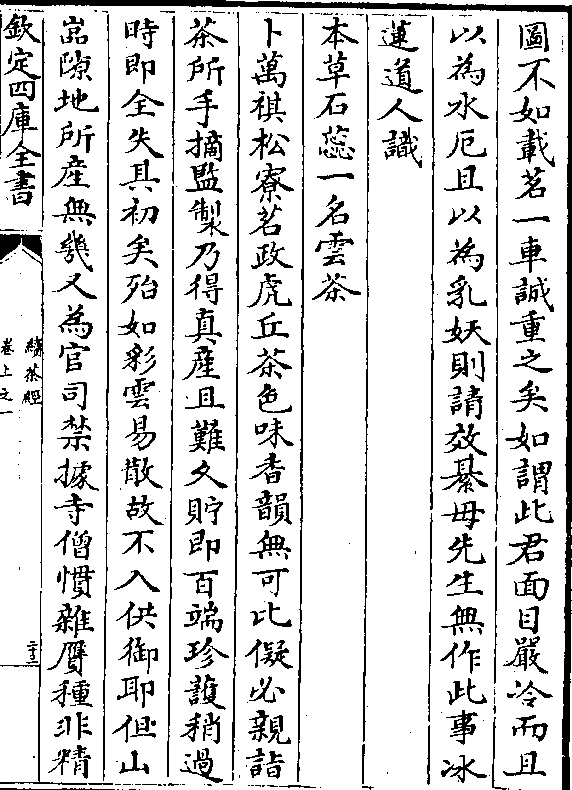 圖不如載茗一車誠重之矣如謂此君面目嚴冷而且
以為水厄且以為乳妖則請效綦毋先生無作此事冰
蓮道人識
本草石蕊一名雲茶
卜萬祺松寮茗政虎丘茶色味香韻無可比儗必親詣
茶所手摘監製乃得真産且難久貯即百端珍護稍過
時即全失其初矣殆如彩雲易散故不入供御耶但山
嵓隙地所産無幾又為官司禁據寺僧慣雜贗種非精
欽定四庫全書
續茶經
卷上之一
二十三